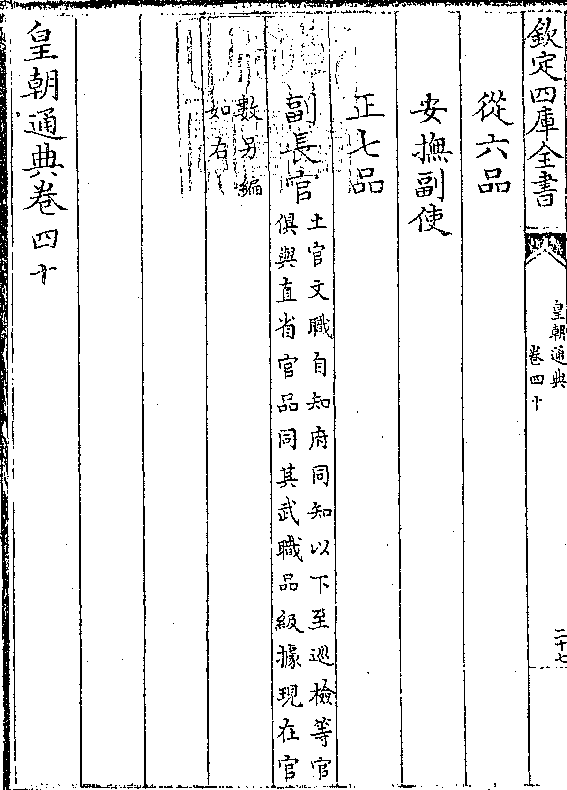 欽定四庫全書
皇朝通典
卷四十
二十七
從六品
安撫副使
正七品
副長官
土官文職自知府同知以下至巡檢等官
俱與直省官品同其武職品級據現在官
數另編
如右
皇朝通典卷四十